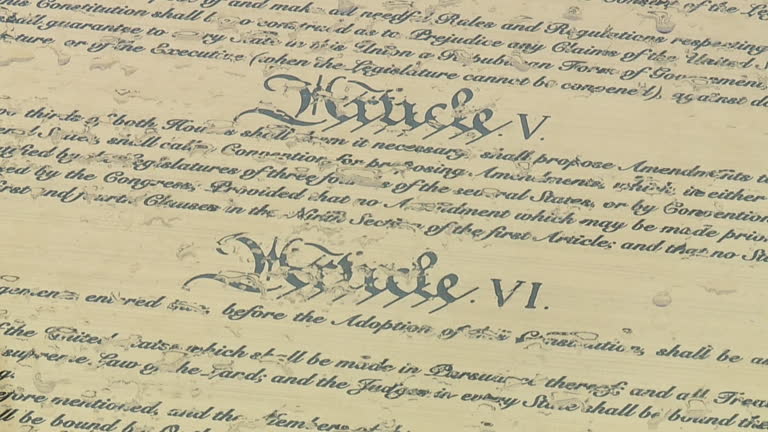 his Constitution shall be so construed as to Prejudice any Claims of the United
shall guarantee to every State in this Union a Republican Form of Government,
or of the Executive (when the Legislature cannot be convened), against
Article. V.
thirds of both Houses shall deem it necessary, shall propose Amendments to
several States, shall call a Convention for proposing Amendments, which, in either
ratified by the Legislatures of three fourths of the several States, or by Convention
by the Congress; Provided that no Amendment which may be made prior
first and fourth Clauses in the Ninth Section of the first Article; and that no
Article. VI.
entered into, before the Adoption of this Constitution, shall be as
of the United States which shall be made in Pursuance thereof; and all
supreme Law of the Land; and the Judges in every State shall be bound
before mentioned, and the Members of the
be bound by